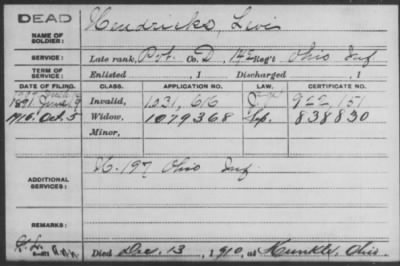 DEAD
NAME OF SOLDIER: Hendricks, Levi
SERVICE: Late rank, Pvt. Co. D, 142 Reg't Ohio Inf
TERM OF SERVICE: Enlisted , 1 Discharged , 1
DATE OF FILING. CLASS. APPLICATION NO. LAW. CERTIFICATE NO.
1891 June 9 Invalid, 1031,616 922,151
1916. Oct. 5 Widow, 1079368 Sep. 838830
Minor,
ADDITIONAL SERVICES: H. 197 Ohio Inf
REMARKS:
Died Dec. 13, 1910, at Kunkle, Ohio.